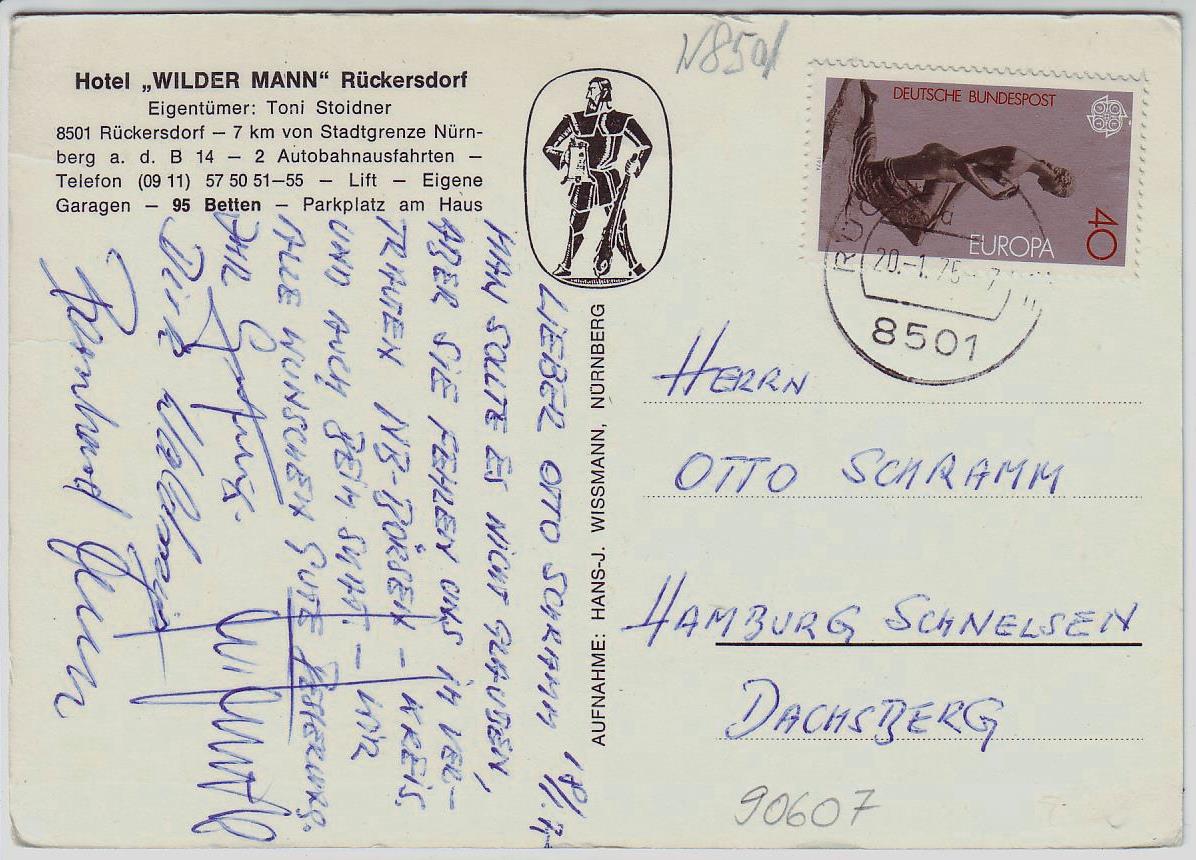 Hotel „WILDER MANN“ Rückersdorf
Eigentümer: Toni Stoidner
8501 Rückersdorf – 7 km von Stadtgrenze Nürn-
berg a. d. B 14 – 2 Autobahnausfahrten –
Telefon (09 11) 57 50 51–55 – Lift – Eigene
Garagen – 95 Betten – Parkplatz am Haus
N8501
DEUTSCHE BUNDESPOST
EUROPA
40
20.-1.75.-7
8501
LIEBER OTTO SCHRAMM 18/1.
MAN SOLLTE ES NICHT GLAUBEN,
ABER SIE FEHLEN UNS IM VER-
TRAUTEN NB-BÖRSEN-KREIS
UND AUCH BEIM SKAT. – WIR
ALLE WÜNSCHEN GUTE BESSERUNG.
IHR
Dirk
AUFNAHME: HANS-J. WISSMANN, NÜRNBERG
HERRN
OTTO SCHRAMM
HAMBURG SCHNELSEN
DACHSBERG
90607